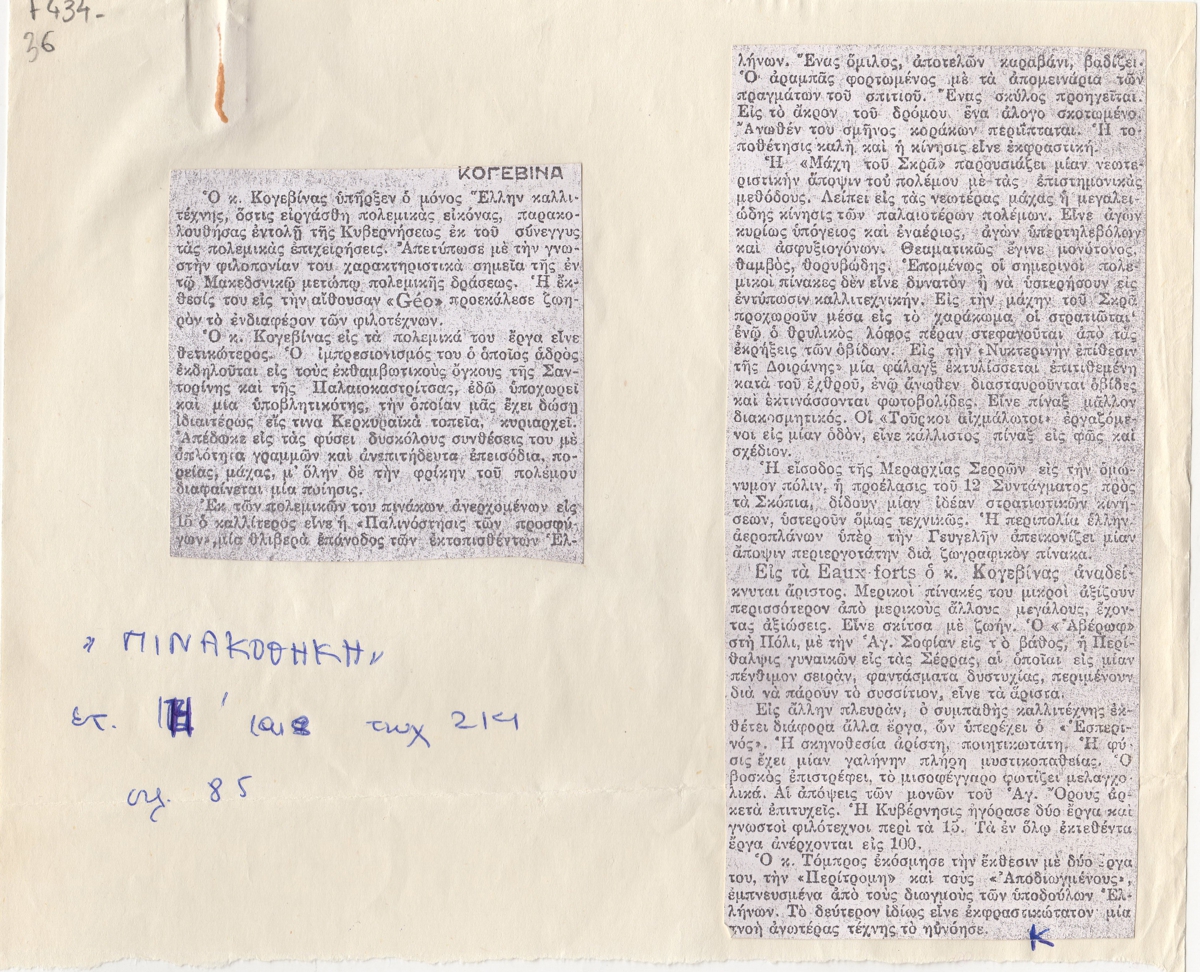 7434-
36
ΚΟΓΕΒΙΝΑ
Ὁ κ. Κογεβίνας ὑπῆρξεν ὁ μόνος Ἕλλην καλλι-
τέχνης, ὅστις εἰργάσθη πολεμικὰς εἰκόνας, παρακο-
λουθήσας ἐντολῇ τῆς Κυβερνήσεως ἐκ τοῦ σύνεγγυς
τὰς πολεμικὰς ἐπιχειρήσεις. Ἀπετύπωσε μὲ τὴν γνω-
στὴν φιλοπονίαν του χαρακτηριστικὰ σημεῖα τῆς ἐν
τῷ Μακεδονικῷ μετώπῳ πολεμικῆς δράσεως. Ἡ ἔκ-
θεσίς του εἰς τὴν αἴθουσαν «Géo» προεκάλεσε ζωη-
ρὸν τὸ ἐνδιαφέρον τῶν φιλοτέχνων.
Ὁ κ. Κογεβίνας εἰς τὰ πολεμικά του ἔργα εἶνε
θετικώτερος. Ὁ ἰμπρεσιονισμός του ὁ ὁποῖος ἁδρὸς
ἐκδηλοῦται εἰς τοὺς ἐκθαμβωτικοὺς ὄγκους τῆς Σαν-
τορίνης καὶ τῆς Παλαιοκαστρίτσας, ἐδῶ ὑποχωρεῖ
καὶ μία ὑποβλητικότης, τὴν ὁποίαν μᾶς ἔχει δώσῃ
ἰδιαιτέρως εἴς τινα Κερκυραϊκὰ τοπεῖα, κυριαρχεῖ.
Ἀπέδωκε εἰς τὰς φύσει δυσκόλους συνθέσεις του μὲ
ἁπλότητα γραμμῶν καὶ ἀνεπιτήδευτα ἐπεισόδια, πο-
ρείας, μάχας, μ' ὅλην δὲ τὴν φρίκην τοῦ πολέμου
διαφαίνεται μία ποίησις.
Ἐκ τῶν πολεμικῶν του πινάκων ἀνερχομένων εἰς
15 ὁ καλλίτερος εἶνε ἡ «Παλινόστησις τῶν προσφύ-
γων», μία θλιβερὰ ἐπάνοδος τῶν ἐκτοπισθέντων Ἑλ-
„ ΠΙΝΑΚΟΘΗΚΗ „
ἔτ. ΙΗ' τευχ 214
σελ. 85
λήνων. Ἕνας ὅμιλος, ἀποτελῶν καραβάνι, βαδίζει.
Ὁ ἀραμπᾶς φορτωμένος μὲ τὰ ἀπομεινάρια τῶν
πραγμάτων τοῦ σπιτιοῦ. Ἕνας σκύλος προηγεῖται.
Εἰς τὸ ἄκρον τοῦ δρόμου ἕνα ἄλογο σκοτωμένο.
Ἄνωθέν του σμῆνος κοράκων περιΐπταται. Ἡ το-
ποθέτησις καλὴ καὶ ἡ κίνησις εἶνε ἐκφραστική.
Ἡ «Μάχη τοῦ Σκρᾶ» παρουσιάζει μίαν νεωτε-
ριστικὴν ἄποψιν τοῦ πολέμου μὲ τὰς ἐπιστημονικὰς
μεθόδους. Λείπει εἰς τὰς νεωτέρας μάχας ἡ μεγαλει-
ώδης κίνησις τῶν παλαιοτέρων πολέμων. Εἶνε ἀγὼν
κυρίως ὑπόγειος καὶ ἐναέριος, ἀγὼν ὑπερτηλεβόλων
καὶ ἀσφυξιογόνων. Θεαματικῶς ἔγινε μονότονος,
θαμβός, θορυβώδης. Ἑπομένως οἱ σημερινοὶ πολε-
μικοὶ πίνακες δὲν εἶνε δυνατὸν ἢ νὰ ὑστερήσουν εἰς
ἐντύπωσιν καλλιτεχνικήν. Εἰς τὴν μάχην τοῦ Σκρᾶ
προχωροῦν μέσα εἰς τὸ χαράκωμα οἱ στρατιῶται
ἐνῷ ὁ θρυλικὸς λόφος πέραν στεφανοῦται ἀπὸ τὰς
ἐκρήξεις τῶν ὀβίδων. Εἰς τὴν «Νυκτερινὴν ἐπίθεσιν
τῆς Δοϊράνης» μία φάλαγξ ἐκτυλίσσεται ἐπιτιθεμένη
κατὰ τοῦ ἐχθροῦ, ἐνῷ ἄνωθεν διασταυροῦνται ὀβίδες
καὶ ἐκτινάσσονται φωτοβολίδες. Εἶνε πίναξ μᾶλλον
διακοσμητικός. Οἱ «Τοῦρκοι αἰχμάλωτοι» ἐργαζόμε-
νοι εἰς μίαν ὁδόν, εἶνε κάλλιστος πίναξ εἰς φῶς καὶ
σχέδιον.
Ἡ εἴσοδος τῆς Μεραρχίας Σερρῶν εἰς τὴν ὁμώ-
νυμον πόλιν, ἡ προέλασις τοῦ 12 Συντάγματος πρὸς
τὰ Σκόπια, δίδουν μίαν ἰδέαν στρατιωτικῶν κινή-
σεων, ὑστεροῦν ὅμως τεχνικῶς. Ἡ περιπολία ἑλλην.
ἀεροπλάνων ὑπὲρ τὴν Γευγελῆν ἀπεικονίζει μίαν
ἄποψιν περιεργοτάτην διὰ ζωγραφικὸν πίνακα.
Εἰς τὰ Eaux-forts ὁ κ. Κογεβίνας ἀναδεί-
κνυται ἄριστος. Μερικοὶ πίνακές του μικροὶ ἀξίζουν
περισσότερον ἀπὸ μερικοὺς ἄλλους μεγάλους, ἔχον-
τας ἀξιώσεις. Εἶνε σκίτσα μὲ ζωήν. Ὁ «Ἀβέρωφ»
στὴ Πόλι, μὲ τὴν Ἁγ. Σοφίαν εἰς τὸ βάθος, ἡ Περί-
θαλψις γυναικῶν εἰς τὰς Σέρρας, αἱ ὁποῖαι εἰς μίαν
πένθιμον σειράν, φαντάσματα δυστυχίας, περιμένουν
διὰ νὰ πάρουν τὸ συσσίτιον, εἶνε τὰ ἄριστα.
Εἰς ἄλλην πλευράν, ὁ συμπαθὴς καλλιτέχνης ἐκ-
θέτει διάφορα ἄλλα ἔργα, ὧν ὑπερέχει ὁ «Ἑσπερι-
νός». Ἡ σκηνοθεσία ἀρίστη, ποιητικωτάτη. Ἡ φύ-
σις ἔχει μίαν γαλήνην πλήρη μυστικοπαθείας. Ὁ
βοσκὸς ἐπιστρέφει, τὸ μισοφέγγαρο φωτίζει μελαγχο-
λικά. Αἱ ἀπόψεις τῶν μονῶν τοῦ Ἁγ. Ὄρους ἀρ-
κετὰ ἐπιτυχεῖς. Ἡ Κυβέρνησις ἠγόρασε δύο ἔργα καὶ
γνωστοὶ φιλότεχνοι περὶ τὰ 15. Τὰ ἐν ὅλῳ ἐκτεθέντα
ἔργα ἀνέρχονται εἰς 100.
Ὁ κ. Τόμπρος ἐκόσμησε τὴν ἔκθεσιν μὲ δύο ἔργα
του, τὴν «Περίτρομη» καὶ τοὺς «Ἀποδιωγμένους»,
ἐμπνευσμένα ἀπὸ τοὺς διωγμοὺς τῶν ὑποδούλων Ἑλ-
λήνων. Τὸ δεύτερον ἰδίως εἶνε ἐκφραστικώτατον· μία
πνοὴ ἀνωτέρας τέχνης τὸ ηὐνόησε.
Κ